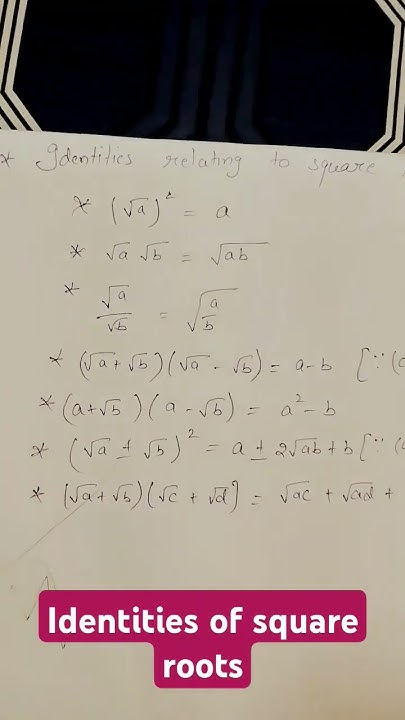 * Identities relating to square
* (√a)² = a
* √a √b = √ab
* √a/√b = √(a/b)
* (√a + √b) (√a - √b) = a - b [∵ (a
* (a + √b) (a - √b) = a² - b
* (√a ± √b)² = a ± 2√ab + b [∵ (a
* (√a + √b) (√c + √d) = √ac + √ad +
Identities of square
roots